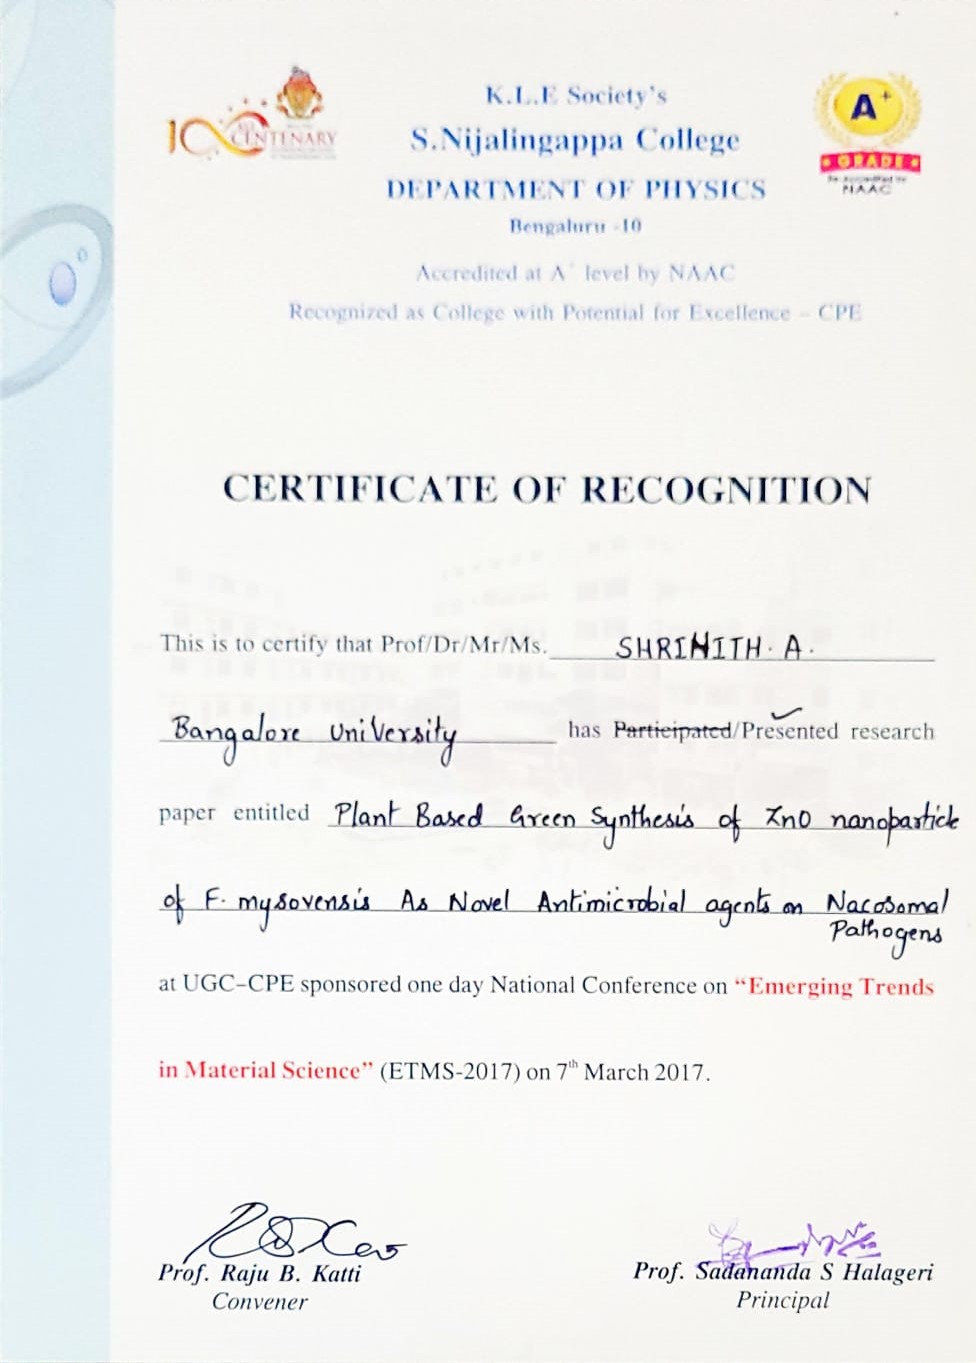 K.L.E Society's
S.Nijalingappa College
DEPARTMENT OF PHYSICS
Bengaluru -10
Accredited at A+ level by NAAC
Recognized as College with Potential for Excellence – CPE
100 CENTENARY
A+
GRADE
Re-Accredited by
NAAC
CERTIFICATE OF RECOGNITION
This is to certify that Prof/Dr/Mr/Ms. SHRINITH. A.
Bangalore University has Participated/Presented research
paper entitled Plant Based Green Synthesis of ZnO nanoparticle
of F. mysovensis As Novel Antimicrobial agents on Nacosomal
Pathogens
at UGC–CPE sponsored one day National Conference on “Emerging Trends
in Material Science” (ETMS-2017) on 7th March 2017.
Prof. Raju B. Katti
Convener
Prof. Sadananda S Halageri
Principal